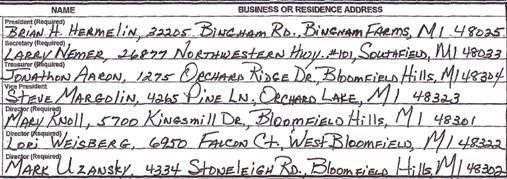 NAME BUSINESS OR RESIDENCE ADDRESS
President (Required)
BRIAN H. HERMELIN, 32205 BINGHAM RD., BINGHAM FARMS, MI 48025
Secretary (Required)
LARRY NEMER, 26877 NORTHWESTERN HWY. #101, SOUTHFIELD, MI 48033
Treasurer (Required)
JONATHON AARON, 1275 ORCHARD RIDGE DR, BLOOMFIELD HILLS, MI 48304
Vice President
STEVE MARGOLIN, 4265 PINE LN, ORCHARD LAKE, MI 48323
Director (Required)
MARY KNOLL, 5700 KINGSMILL DR., BLOOMFIELD HILLS, MI 48301
Director (Required)
LORI WEISBERG, 6950 FALCON CT., WEST BLOOMFIELD, MI 48322
Director (Required)
MARK UZANSKY, 4334 STONELEIGH RD., BLOOMFIELD HILLS, MI 48302